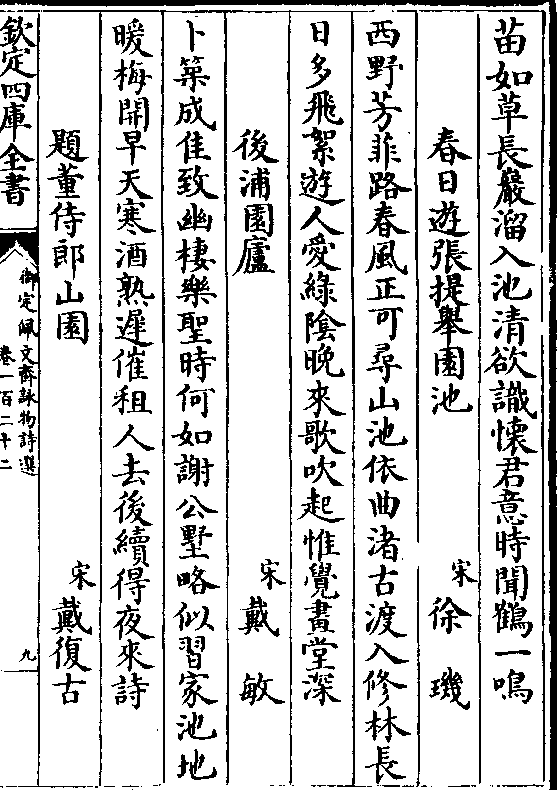 苗如草長巖溜入池清欲識懷君意時聞鶴一鳴
春日遊張提舉園池　宋　徐　璣
西野芳菲路春風正可尋山池依曲渚古渡入修林長
日多飛絮遊人愛綠陰晚來歌吹起惟覺畫堂深
後浦園廬　宋　戴　敏
卜築成佳致幽棲樂聖時何如謝公墅略似習家池地
暖梅開早天寒酒熟遲催租人去後續得夜來詩
題董侍郎山園　宋　戴復古
欽定四庫全書
御定佩文齋詠物詩選
卷一百二十二
九